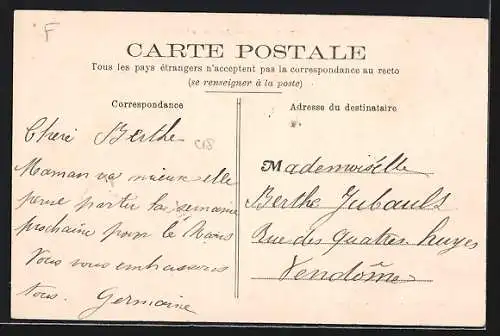 F
CARTE POSTALE
Tous les pays étrangers n'acceptent pas la correspondance au recto
(se renseigner à la poste)
Correspondance
Adresse du destinataire
Cheri Berthe
C18
Maman va mieux elle
pense partir la semaine
prochaine pour le Mans
Vous vous embrassons
tous. Germaine
Mademoiselle
Berthe Jubault
Rue des Quatres huyes
Vendôme